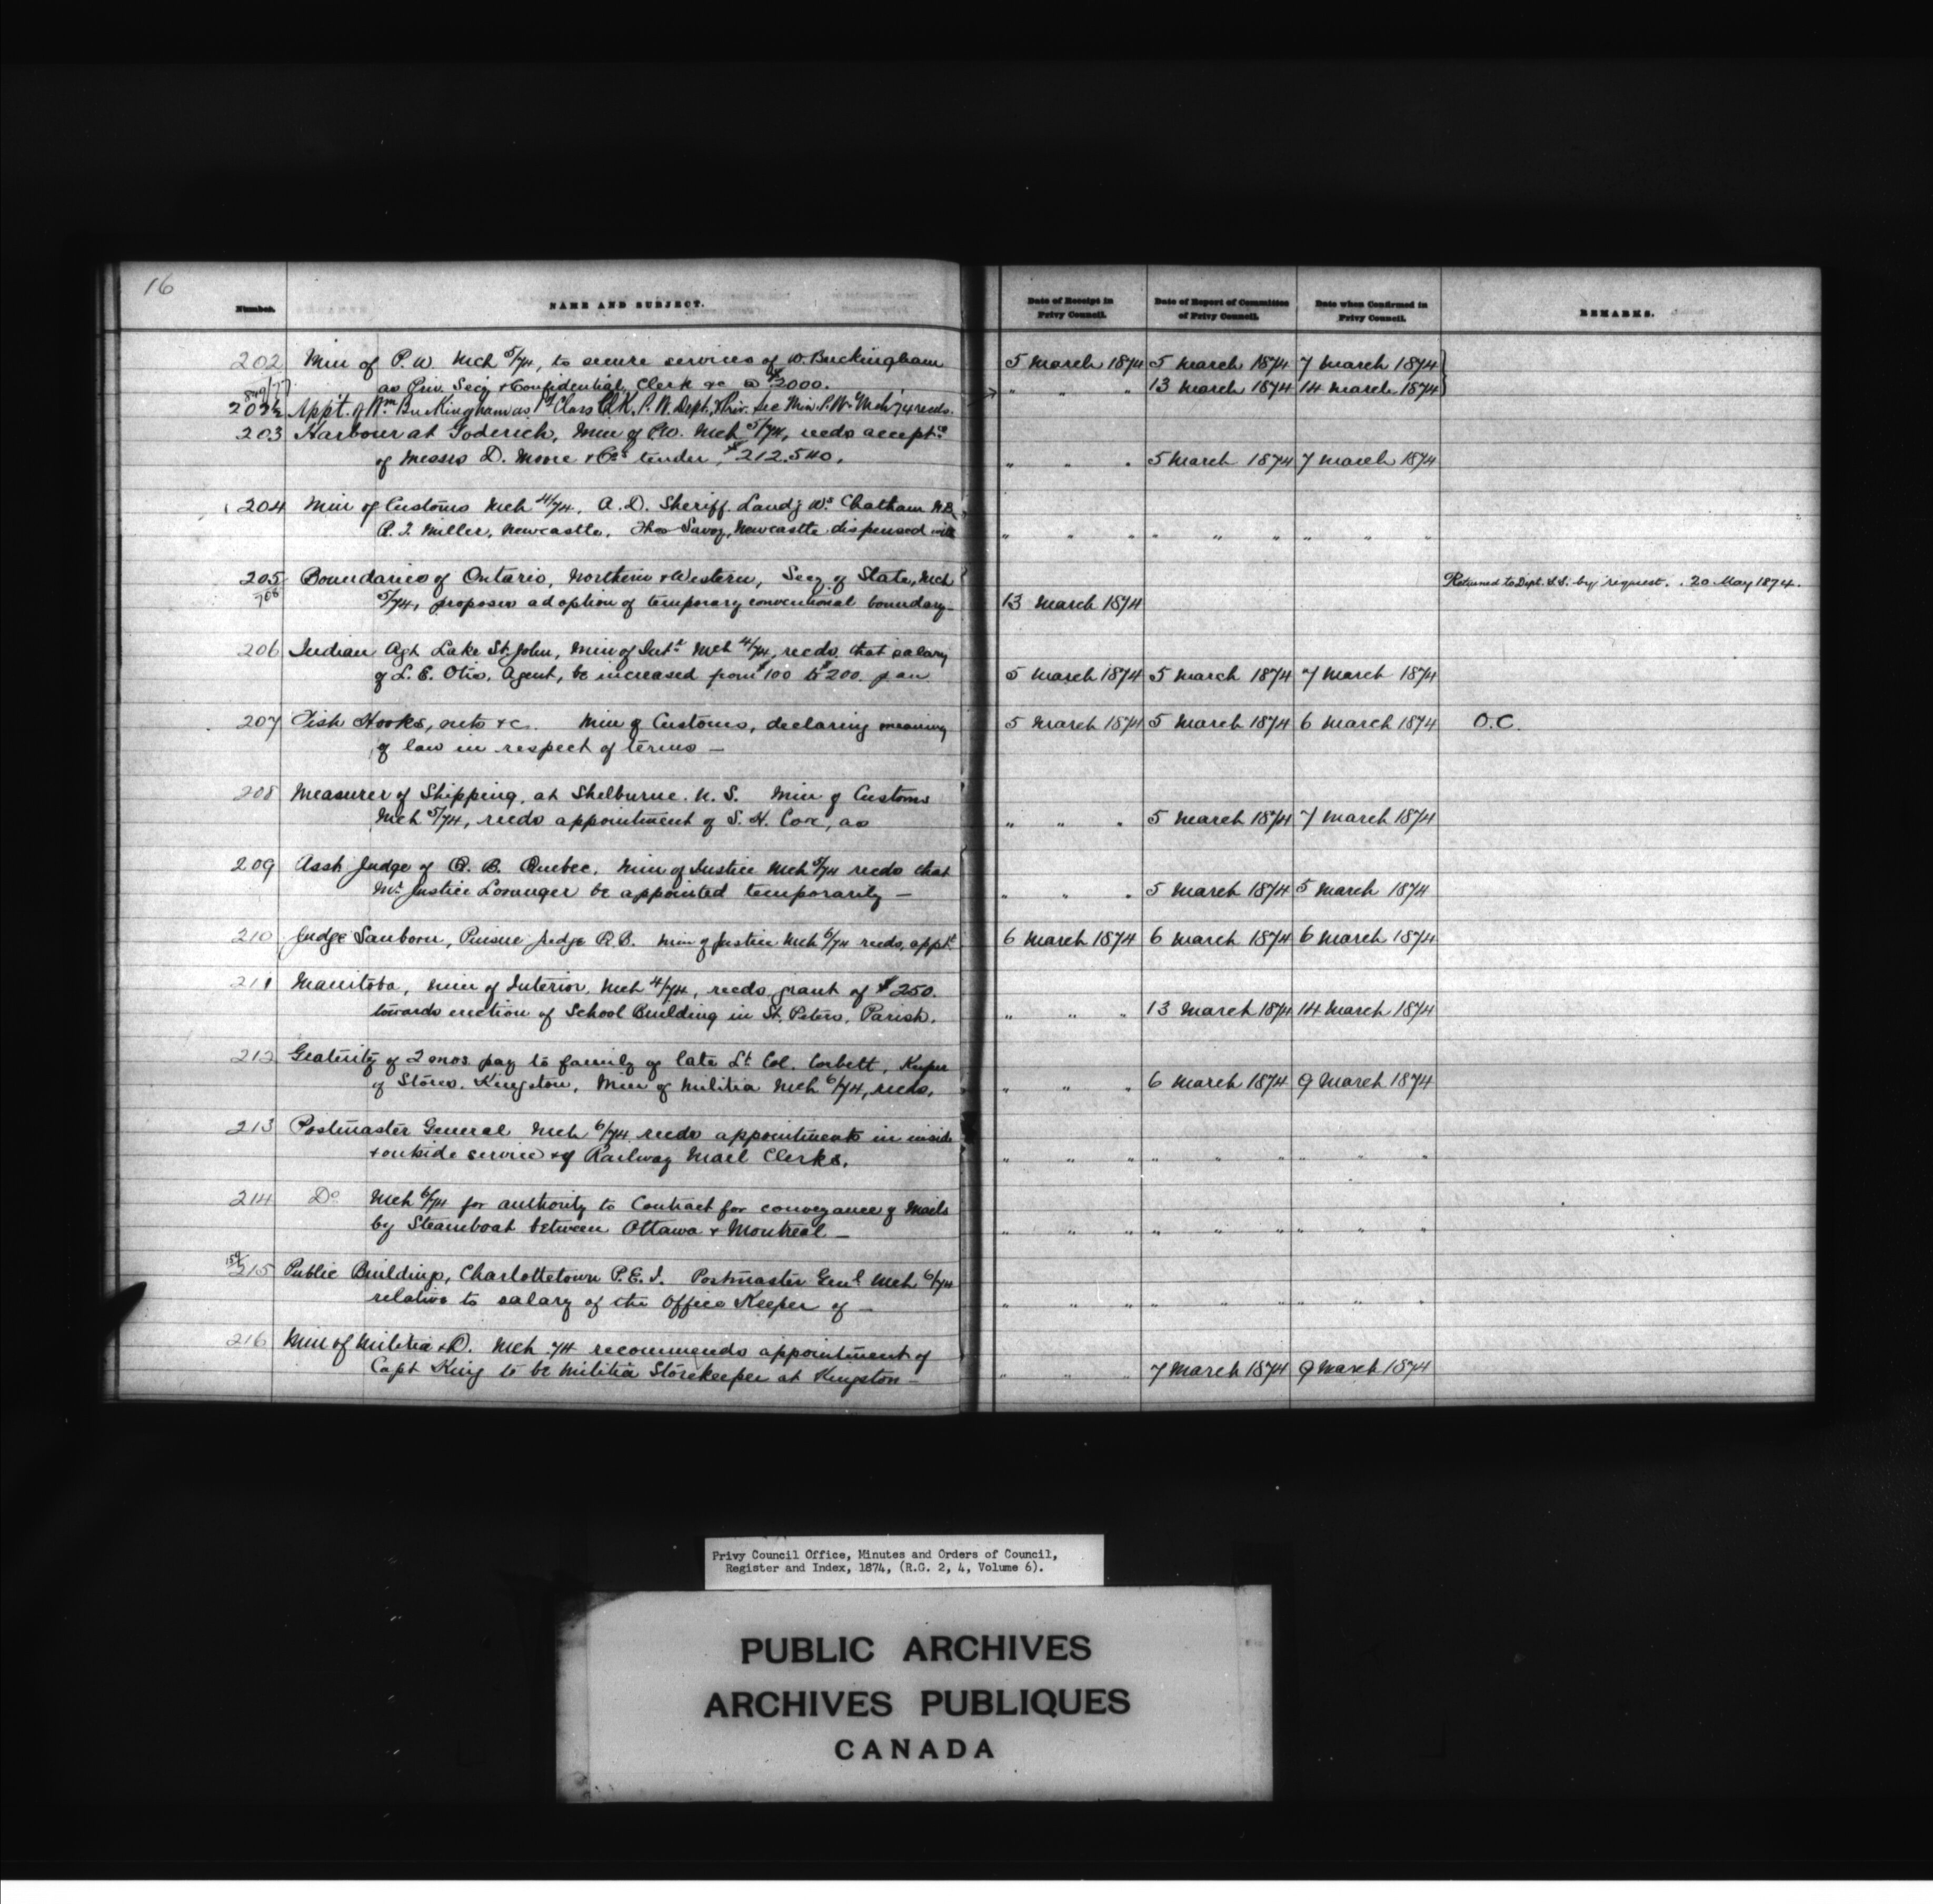 16
Number. NAME AND SUBJECT. Date of Receipt in Privy Council. Date of Report of Committee of Privy Council. Date when Confirmed in Privy Council. REMARKS.
202 Min of P. W. Mch 5/74, to secure services of W. Buckingham 5 March 1874 5 March 1874 7 March 1874
as Priv. Secy & Confidential Clerk &c @ $2000. " " " 13 March 1874 14 March 1874
202½ Appt. of Wm Buckingham as 1st Class Clk, P. W. Dept. & Priv. Sec Min. P. W. Mch 74 recds.
203 Harbour at Goderich, Min of P.W. Mch 5/74, recds accept.ce
of Messrs D. Moore & Co's tender, $212.540. " " " 5 March 1874 7 March 1874
204 Min of Customs Mch 4/74. A. D. Sheriff. Landg Wr. Chatham N.B.
R. T. Miller, Newcastle. Thos Savoy, Newcastle dispensed with " " " " " " " " "
205 Boundaries of Ontario, Northern & Western, Secy of State, Mch Returned to Dept. S.S. by request. 20 May 1874.
708 5/74, proposes adoption of temporary conventional boundary 13 March 1874
206 Indian Agt Lake St. John, Min of Intr Mch 4/74, recds that salary
of L. E. Otis, Agent, be increased from $100 to $200 p an 5 March 1874 5 March 1874 7 March 1874
207 Fish Hooks, nets &c. Min of Customs, declaring meaning 5 March 1874 5 March 1874 6 March 1874 O.C.
of law in respect of terms —
208 Measurer of Shipping, at Shelburne. N. S. Min of Customs
Mch 5/74, recds appointment of S. H. Cox, as " " " 5 March 1874 7 March 1874
209 Asst Judge of Q. B. Quebec. Min of Justice Mch 5/74 recds that
Mr. Justice Loranger be appointed temporarily — " " " 5 March 1874 5 March 1874
210 Judge Sanborn, Puisne Judge Q.B. Min of Justice Mch 6/74 recds. appt. 6 March 1874 6 March 1874 6 March 1874
211 Manitoba, Min of Interior, Mch 4/74, recds grant of $250.
towards erection of School Building in St. Peters, Parish. " " " 13 March 1874 14 March 1874
212 Gratuity of 2 mos pay to family of late Lt Col. Corbett, Keeper
of Stores. Kingston, Min of Militia Mch 6/74, recds. " " " 6 March 1874 9 March 1874
213 Postmaster General Mch 6/74 recds appointments in inside
& outside service & of Railway Mail Clerks. " " " " " " " " "
214 Do Mch 6/74 for authority to Contract for conveyance of Mails
by Steamboat between Ottawa & Montreal — " " " " " " " " "
215 Public Buildings, Charlottetown P.E.I. Postmaster Genl Mch 6/74
relative to salary of the Office Keeper of — " " " " " " " " "
216 Min of Militia & D. Mch 74 recommends appointment of
Capt King to be Militia Storekeeper at Kingston — " " " 7 March 1874 9 March 1874
Privy Council Office, Minutes and Orders of Council,
Register and Index, 1874, (R.G. 2, 4, Volume 6).
PUBLIC ARCHIVES
ARCHIVES PUBLIQUES
CANADA